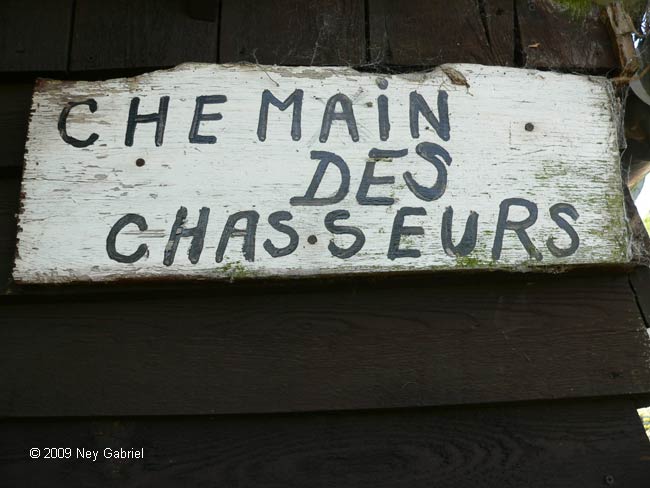 CHEMAiN
DES
CHASSEURS
© 2009 Ney Gabriel